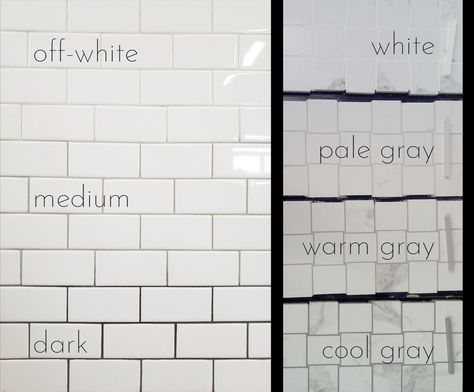 off-white
medium
dark
white
pale gray
warm gray
cool gray